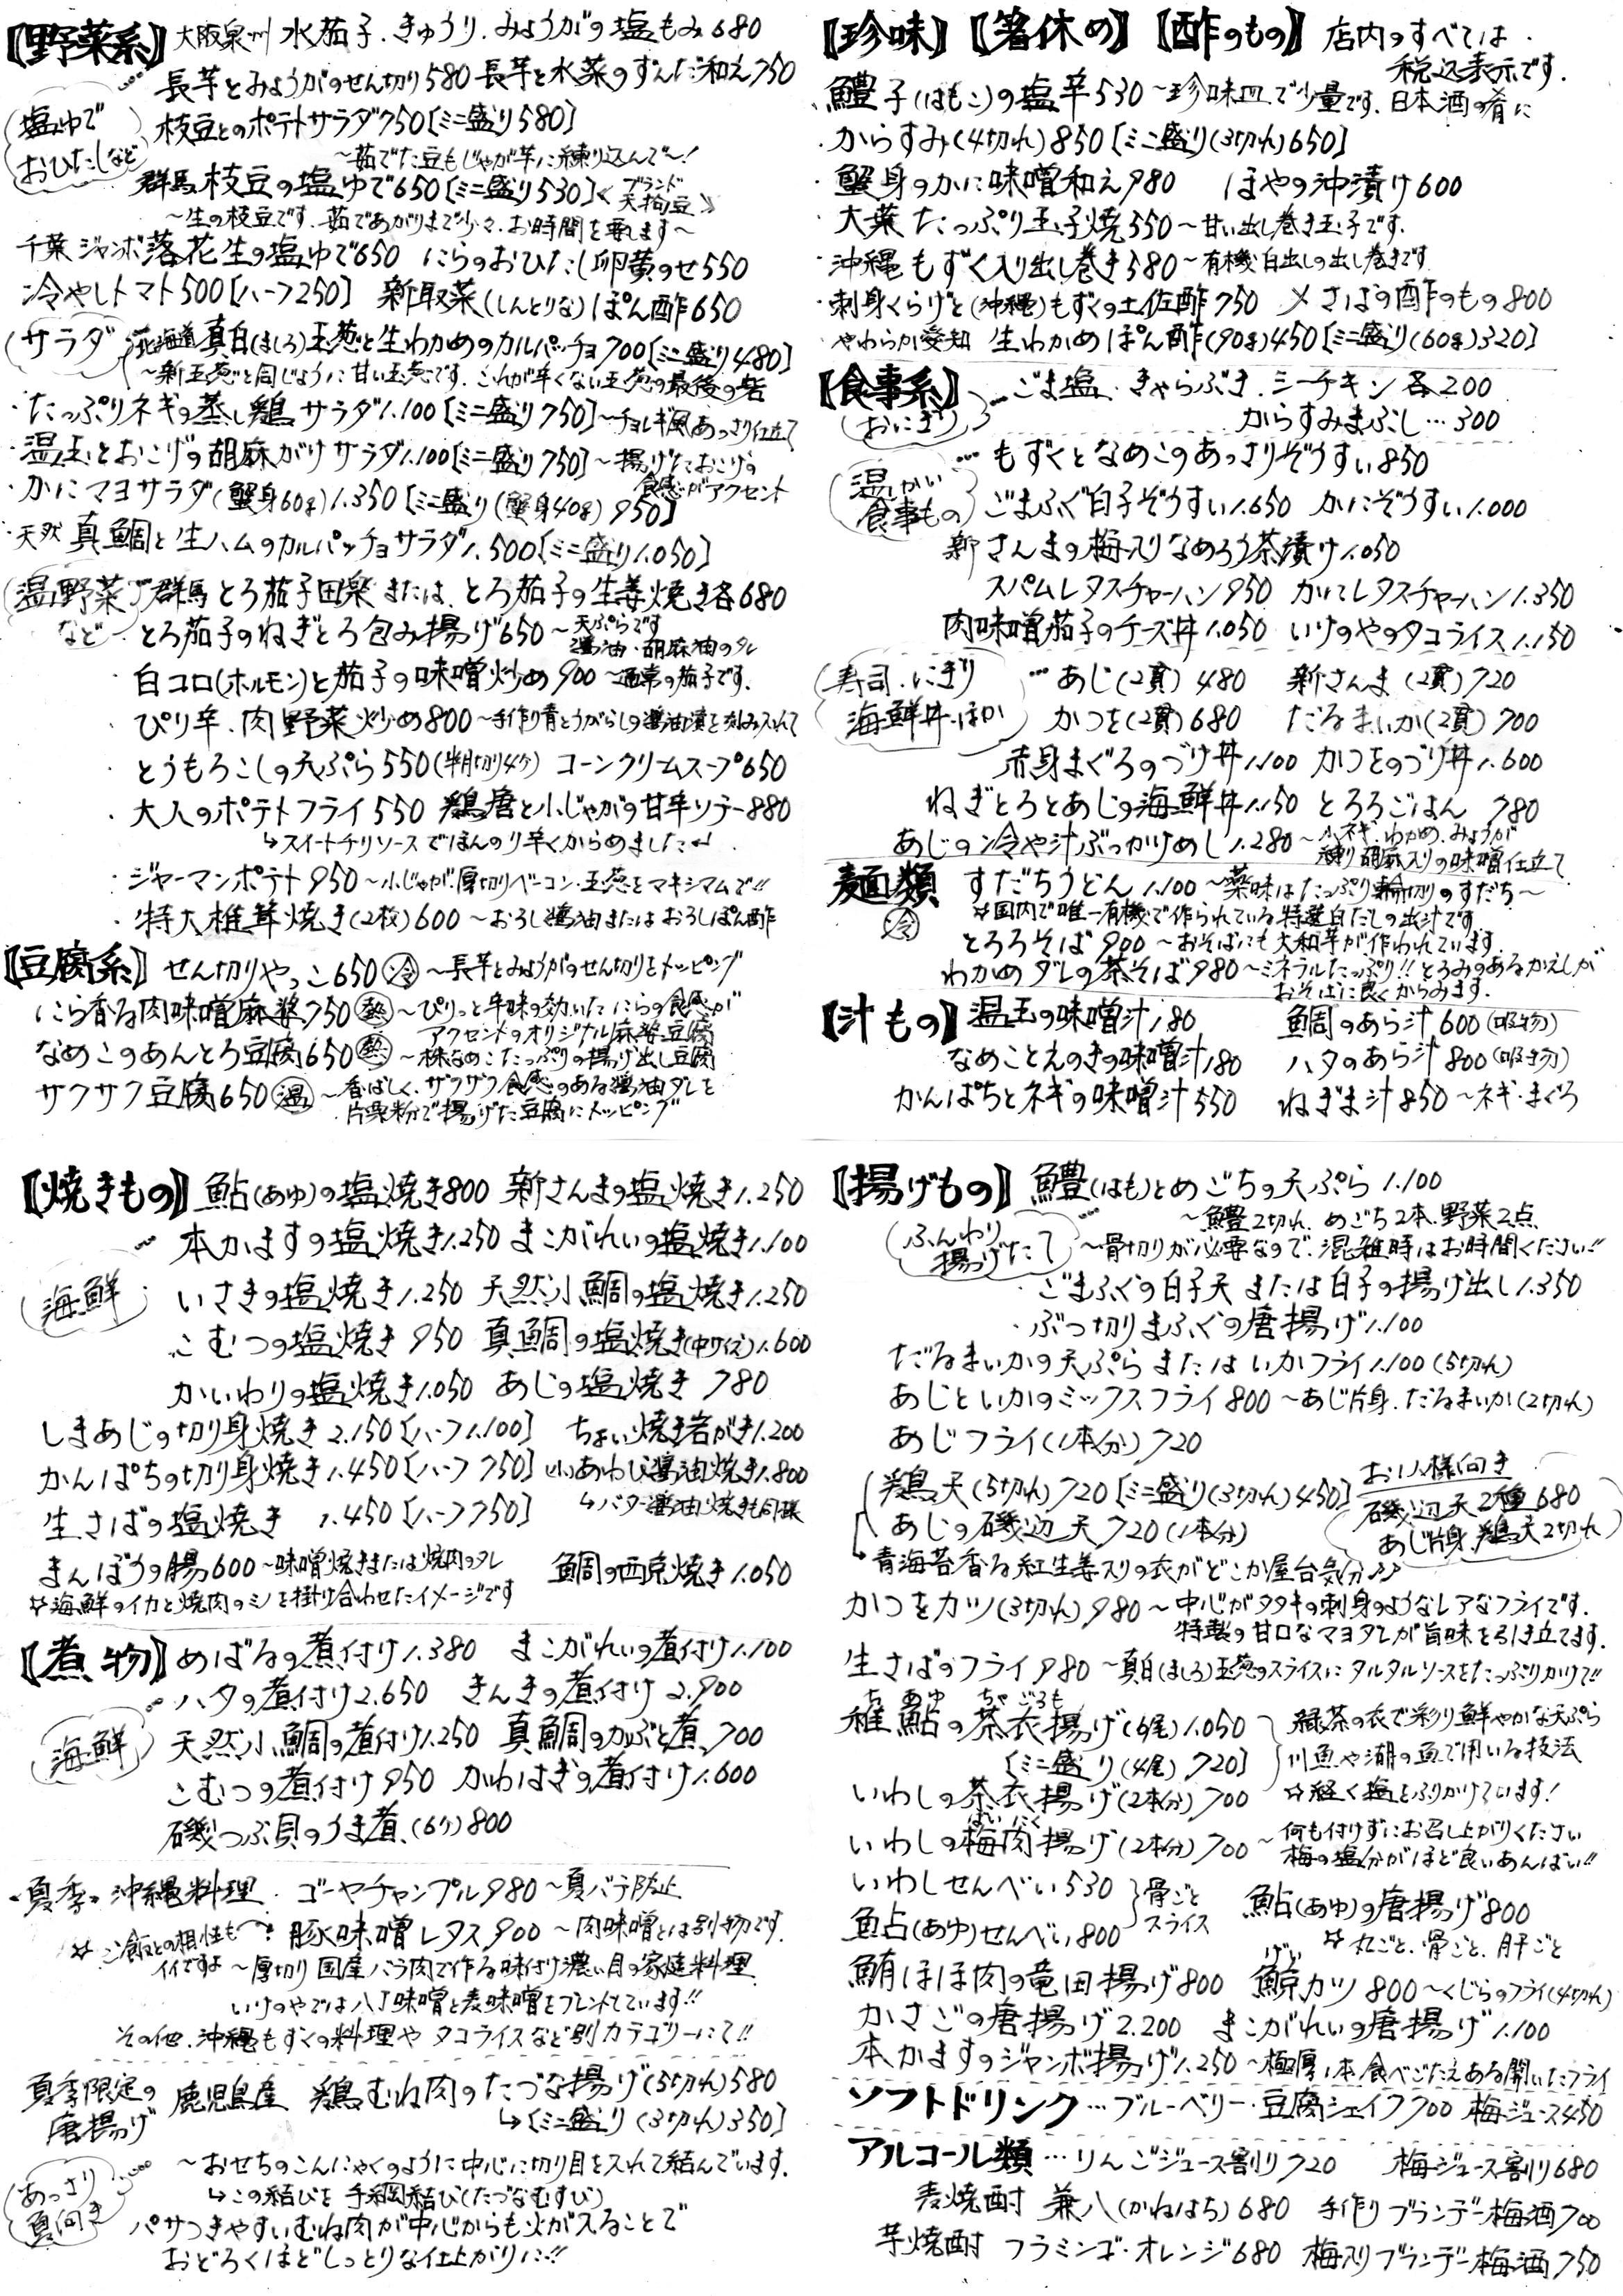 【野菜系】 大阪泉州 水茄子.きゅうり.みょうがの塩もみ680
長芋とみょうがのせん切り580 長芋と水菜のずんだ和え750
塩ゆで
おひたしなど
枝豆とのポテトサラダ750[ミニ盛り580]
～茹でた豆もじゃが芋に練り込んで～!
群馬 枝豆の塩ゆで650[ミニ盛り530]<ブランド 天狗豆>
～生の枝豆です.茹であがりまで少々.お時間を要します～
千葉 ジャンボ落花生の塩ゆで650 にらのおひたし卵黄のせ550
冷やしトマト500[ハーフ250] 新取菜(しんとりな)ぽん酢650
サラダ
北海道 真白(ましろ)玉葱と生わかめのカルパッチョ700[ミニ盛り480]
～新玉葱と同じように甘い玉葱です.これが辛くない玉葱の最後の砦
・たっぷりネギの蒸し鶏サラダ1.100[ミニ盛り750]～チョレギ風あっさり仕立て
・温玉とおこげの胡麻がけサラダ1.100[ミニ盛り750]～揚げたておこげの
食感がアクセント
・かにマヨサラダ(蟹身60g)1.350[ミニ盛り(蟹身40g)950]
・天然 真鯛と生ハムのカルパッチョサラダ1.500[ミニ盛り1.050]
温野菜
など
群馬 とろ茄子田楽 または とろ茄子の生姜焼き各680
・とろ茄子のねぎとろ包み揚げ650～天ぷらです
醤油・胡麻油のタレ
・白コロ(ホルモン)と茄子の味噌炒め900～通常の茄子です.
・ぴり辛.肉野菜炒め800～手作り青とうがらしの醤油漬を刻み入れて
・とうもろこしの天ぷら550(半月切り4ケ) コーンクリームスープ650
・大人のポテトフライ550 鶏唐と小じゃがの甘辛ソテー880
↳スイートチリソースでほんのり辛くからめました↵
・ジャーマンポテト950～小じゃが.厚切りベーコン.玉葱をマキシマムで!!
・特大椎茸焼き(2枚)600～おろし醤油またはおろしぽん酢
【豆腐系】 せん切りやっこ650(冷)～長芋とみょうがのせん切りをトッピング
にら香る肉味噌麻婆750(熱)～ぴりっと辛味の効いた にらの食感が
アクセントのオリジナル麻婆豆腐
なめこのあんとろ豆腐650(熱)～株なめこたっぷりの揚げ出し豆腐
サクサク豆腐650(温)～香ばしく.ザクザク食感のある醤油ダレを
片栗粉で揚げた豆腐にトッピング
【珍味】【箸休め】【酢のもの】 店内のすべては.
税込表示です.
・鱧子(はもこ)の塩辛530～珍味皿で少量です.日本酒の肴に
・からすみ(4切れ)850[ミニ盛り(3切れ)650]
・蟹身のかに味噌和え980 ほやの沖漬け600
・大葉たっぷり玉子焼550～甘い出し巻き玉子です.
・沖縄もずく入り出し巻き580～有機白出しの出し巻きです
・刺身くらげと(沖縄)もずくの土佐酢750 〆さばの酢のもの800
・やわらか愛知 生わかめぽん酢(90g)450[ミニ盛り(60g)320]
【食事系】 ごま塩.きゃらぶき.シーチキン 各200
おにぎり
からすみまぶし…300
温かい
食事もの
もずくとなめこのあっさりぞうすい850
ごまふぐ白子ぞうすい1.650 かにぞうすい1.000
新さんまの梅入りなめろう茶漬け1.050
スパムレタスチャーハン950 かにレタスチャーハン1.350
肉味噌茄子のチーズ丼1.050 いけのやのタコライス1.150
寿司.にぎり
海鮮丼.ほか
あじ(2貫)480 新さんま(2貫)720
かつを(2貫)680 だるまいか(2貫)700
赤身まぐろのづけ丼1.100 かつをのづけ丼1.600
ねぎとろとあじの海鮮丼1.150 とろろごはん 780
あじの冷や汁ぶっかけめし1.280～小ネギ.わかめ.みょうが
練り胡麻入りの味噌仕立て
麺類 すだちうどん1.100～薬味はたっぷり輪切りのすだち～
冷
☆国内で唯一有機で作られている特選白だしの出汁です
とろろそば900～おそばにも大和芋が使われています.
わかめダレの茶そば980～ミネラルたっぷり!!とろみのあるかえしが
おそばに良くからみます.
【汁もの】 温玉の味噌汁180 鯛のあら汁600(吸物)
なめことえのきの味噌汁180 ハタのあら汁800(吸物)
かんぱちとネギの味噌汁550 ねぎま汁850～ネギ.まぐろ
【焼きもの】 鮎(あゆ)の塩焼き800 新さんまの塩焼き1.250
海鮮
本かますの塩焼き1.250 まこがれいの塩焼き1.100
いさきの塩焼き1.250 天然小鯛の塩焼き1.250
こむつの塩焼き950 真鯛の塩焼き(中サイズ)1.600
かいわりの塩焼き1.050 あじの塩焼き780
しまあじの切り身焼き2.150[ハーフ1.100] ちょい焼き岩がき1.200
かんぱちの切り身焼き1.450[ハーフ750] 小あわび醤油焼き1.800
↳バター醤油焼きも同様
生さばの塩焼き 1.450[ハーフ750]
まんぼうの腸600～味噌焼きまたは焼肉のタレ 鯛の西京焼き1.050
☆海鮮のイカと焼肉のミノを掛け合わせたイメージです
【煮物】 めばるの煮付け1.380 まこがれいの煮付け1.100
海鮮
ハタの煮付け2.650 きんきの煮付け2.900
天然小鯛の煮付け1.250 真鯛のかぶと煮700
こむつの煮付け950 かわはぎの煮付け1.600
磯つぶ貝のうま煮(6ケ)800
・夏季・沖縄料理. ゴーヤチャンプル980～夏バテ防止
☆ご飯との相性も
イイですよ
豚味噌レタス900～肉味噌とは別物です.
～厚切り国産バラ肉で作る味付け濃い目の家庭料理
いけのやでは八丁味噌と麦味噌をブレンドしています!!
その他.沖縄もずくの料理や タコライスなど別カテゴリーにて!!
夏季限定の
唐揚げ
鹿児島産 鶏むね肉のたづな揚げ(5切れ)580
↳[ミニ盛り(3切れ)350]
あっさり
夏向き
～おせちのこんにゃくのように中心に切り目を入れて結んでいます.
↳この結びを 手綱結び(たづなむすび)
パサつきやすいむね肉が中心からも火が入ることで
おどろくほどしっとりな仕上がりに!!
【揚げもの】 鱧(はも)とめごちの天ぷら1.100
～鱧2切れ.めごち2本.野菜2点
ふんわり
揚げたて
～骨切りが必要なので.混雑時はお時間ください!!
・ごまふぐの白子天 または白子の揚げ出し1.350
・ぶつ切りまふぐの唐揚げ1.100
だるまいかの天ぷら または いかフライ1.100(5切れ)
あじといかのミックスフライ800～あじ片身.だるまいか(2切れ)
あじフライ(1本分)720
鶏天(5切れ)720[ミニ盛り(3切れ)450]
あじの磯辺天720(1本分)
お1人様向き
磯辺天2種680
あじ片身.鶏天2切れ
↳青海苔香る紅生姜入りの衣がどこか屋台気分♪♪
かつをカツ(3切れ)980～中心がタタキの刺身のようなレアなフライです.
特製の甘口なマヨタレが旨味を引き立てます.
生さばのフライ980～真白(ましろ)玉葱のスライスに タルタルソースをたっぷりかけて!!
稚鮎(ちあゆ)の茶衣(ちゃごろも)揚げ(6尾)1.050
[ミニ盛り(4尾)720]
緑茶の衣で彩り鮮やかな天ぷら
川魚や湖の魚で用いる技法
☆軽く塩をふりかけています!
いわしの茶衣揚げ(2本分)700
いわしの梅肉(ばいにく)揚げ(2本分)700～何も付けずにお召し上がりください
梅の塩分がほど良いあんばい!!
いわしせんべい530
鮎(あゆ)せんべい800
骨ごと
スライス
鮎(あゆ)の唐揚げ800
☆丸ごと.骨ごと.肝ごと
鮪ほほ肉の竜田揚げ800 鯨(げい)カツ800～くじらのフライ(4切れ)
かさごの唐揚げ2.200 まこがれいの唐揚げ1.100
本かますのジャンボ揚げ1.250～極厚1本.食べごたえある開いたフライ
ソフトドリンク…ブルーベリー.豆腐シェイク700 梅ジュース450
アルコール類…りんごジュース割り720 梅ジュース割り680
麦焼酎 兼八(かねはち)680 手作りブランデー梅酒700
芋焼酎 フラミンゴ.オレンジ680 梅入りブランデー梅酒750